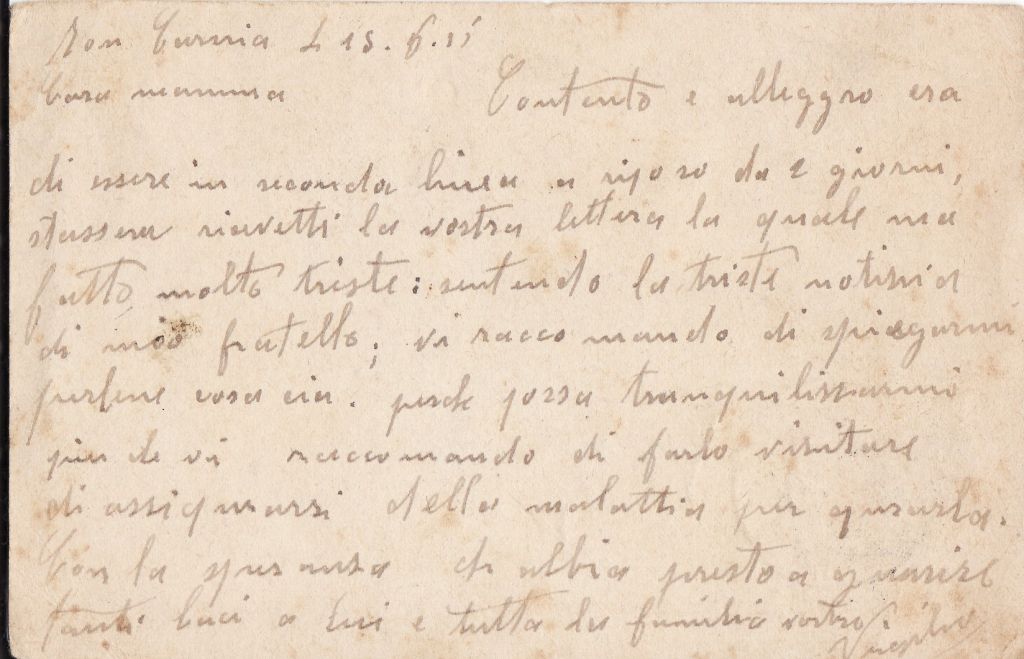 Cara mamma
Contento e alleggro era
di essere in seconda linea a riposo da 2 giorni,
stassera riavetti la vostra lettera la quale ma
fatto molto triste: sentendo la triste notisia
di mio fratello, vi raccomando di spiegarmi
perbene cosa cia. posa tranquilissarmi
piu de vi raccomando di farlo visitare
di assiqurarsi della malattia per qurarla.
Con la speransa ch albia presto a guarire
tanti baci a Lui e tutta la familia vostro